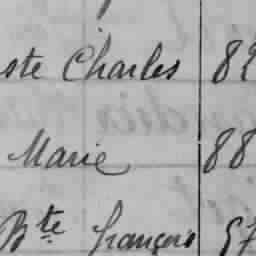 ste Charles 89
Marie 88
Bte françois 57